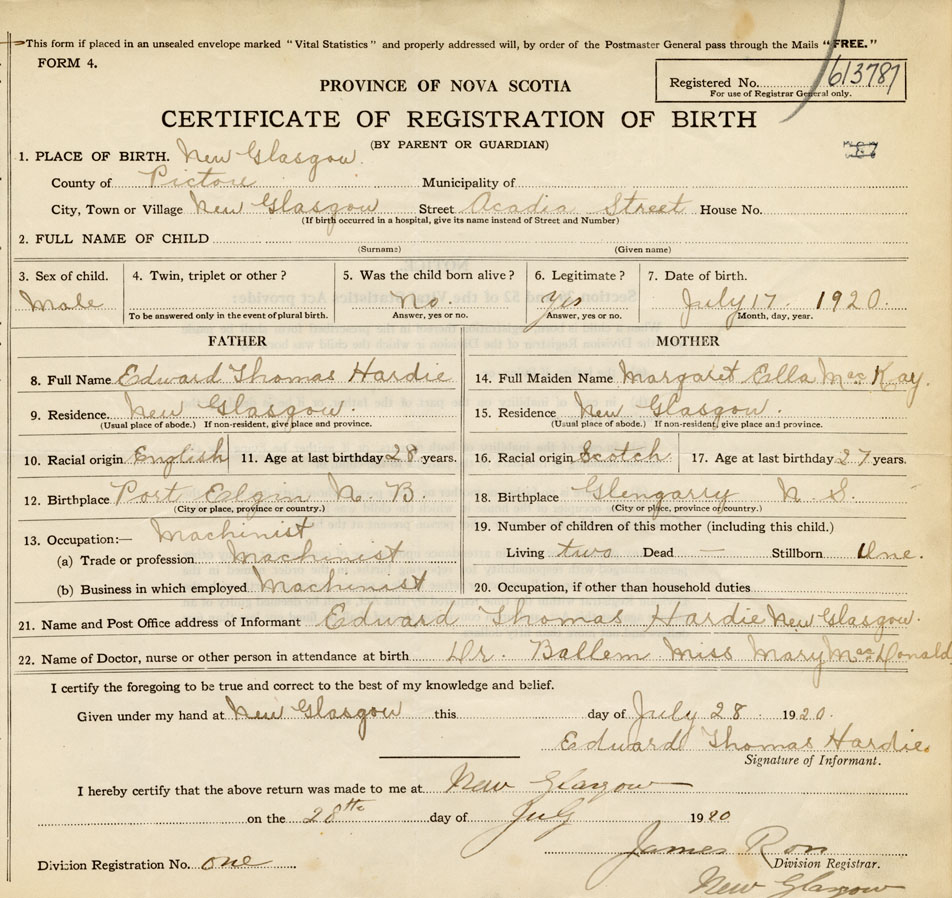 This form if placed in an unsealed envelope marked "Vital Statistics" and properly addressed will, by order of the Postmaster General pass through the Mails "FREE."
FORM 4.
PROVINCE OF NOVA SCOTIA
Registered No. 613787
For use of Registrar General only.
CERTIFICATE OF REGISTRATION OF BIRTH
(BY PARENT OR GUARDIAN)
1. PLACE OF BIRTH. New Glasgow.
County of Pictou Municipality of
City, Town or Village New Glasgow Street Acadia Street House No.
(If birth occurred in a hospital, give its name instead of Street and Number)
2. FULL NAME OF CHILD
(Surname) (Given name)
3. Sex of child. 4. Twin, triplet or other? 5. Was the child born alive? 6. Legitimate? 7. Date of birth.
Male No. Yes July 17. 1920.
To be answered only in the event of plural birth. Answer, yes or no. Answer, yes or no. Month, day, year.
FATHER MOTHER
8. Full Name Edward Thomas Hardie 14. Full Maiden Name Margaret Ella MacKay.
9. Residence. New Glasgow. 15. Residence New Glasgow.
(Usual place of abode.) If non-resident, give place and province. (Usual place of abode.) If non-resident, give place and province.
10. Racial origin English 11. Age at last birthday 28 years. 16. Racial origin Scotch 17. Age at last birthday 27 years.
12. Birthplace Port Elgin N. B. 18. Birthplace Glengarry N. S.
(City or place, province or country.) (City or place, province or country.)
13. Occupation:— Machinist 19. Number of children of this mother (including this child.)
(a) Trade or profession Machinist Living two Dead — Stillborn One.
(b) Business in which employed Machinist 20. Occupation, if other than household duties
21. Name and Post Office address of Informant Edward Thomas Hardie New Glasgow.
22. Name of Doctor, nurse or other person in attendance at birth Dr. Ballem Miss Mary MacDonald
I certify the foregoing to be true and correct to the best of my knowledge and belief.
Given under my hand at New Glasgow this day of July 28. 1920.
Edward Thomas Hardie.
Signature of Informant.
I hereby certify that the above return was made to me at New Glasgow
on the 28th day of July 1920
James
Division Registration No. one Division Registrar.
New Glasgow